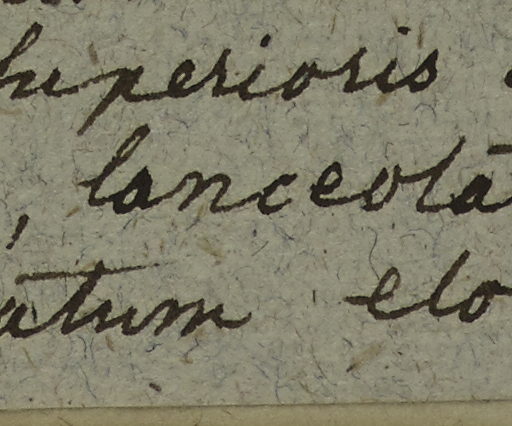 superioris
, lanceola
atum elo